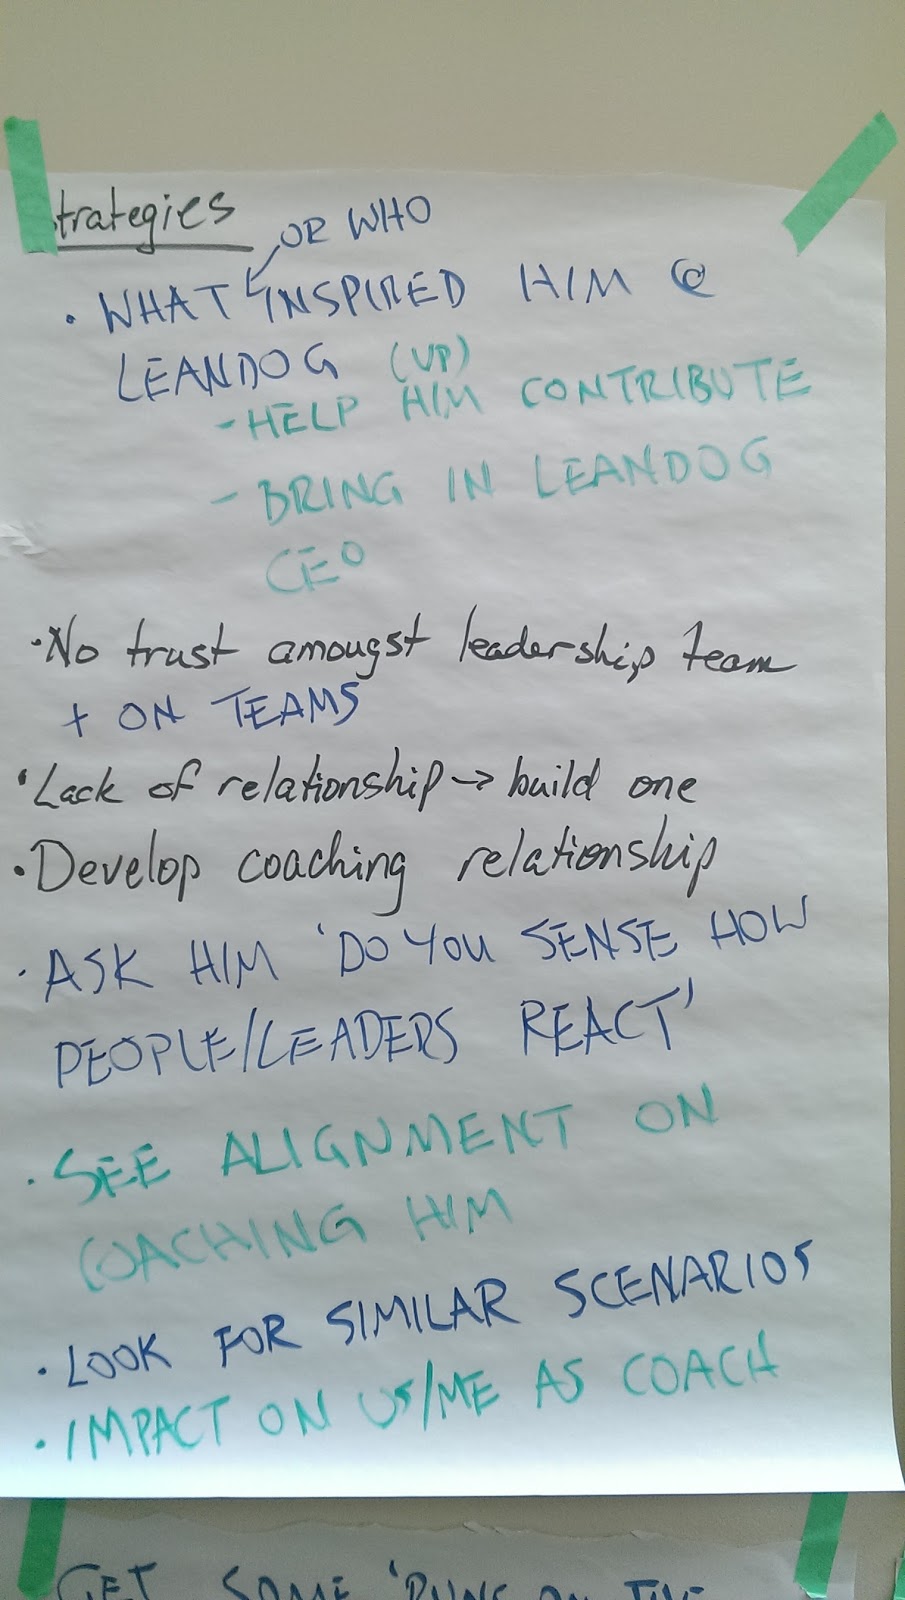 Strategies
OR WHO
• WHAT INSPIRED HIM @
LEANDOG (UP)
- HELP HIM CONTRIBUTE
- BRING IN LEANDOG
CEO
• No trust amougst leadership team
+ ON TEAMS
• Lack of relationship → build one
• Develop coaching relationship
• ASK HIM 'DO YOU SENSE HOW
PEOPLE/LEADERS REACT'
• SEE ALIGNMENT ON
COACHING HIM
• LOOK FOR SIMILAR SCENARIOS
• IMPACT ON US/ME AS COACH
GET SOME 'RUNS ON THE